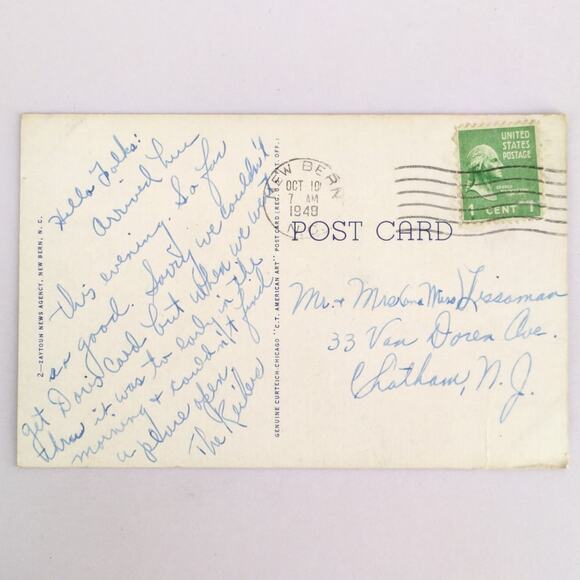 Hello Folks:
Arrived here
this evening. So far
so good. Sorry we couldn't
get Doris' Card but when we went
thru it was to early in the
morning & couldn't find
a place open
The Reikers
2—ZAYTOUN NEWS AGENCY, NEW BERN, N. C.
GENUINE CURTEICH-CHICAGO "C.T. AMERICAN ART" POST CARD (REG. U.S. PAT. OFF.)
NEW BERN
OCT 10
7 AM
1949
N.C.
UNITED
STATES
POSTAGE
1 CENT 1
POST CARD
Mr. & Mrs (and Miss) Lissaman
33 Van Doren Ave.
Chatham, N. J.